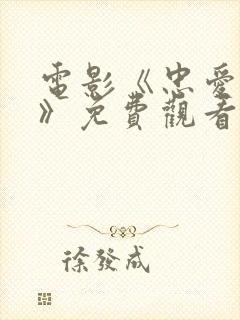 電影《忠愛
》免費觀看
徐發成